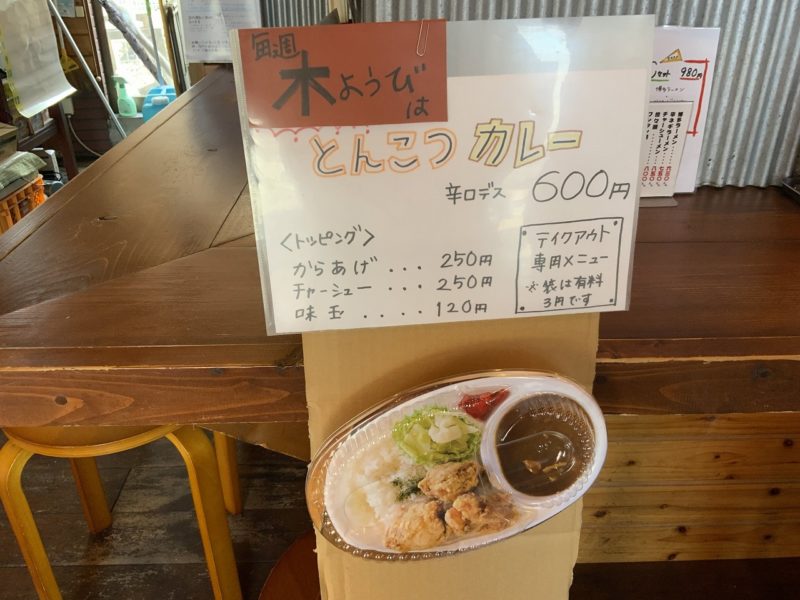 毎週
木ようびは
とんこつ カレー
辛口デス 600円
<トッピング>
からあげ ... 250円
チャーシュー ... 250円
味玉 .... 120円
テイクアウト
専用メニュー
※袋は有料
3円です
980円
博多ラーメン